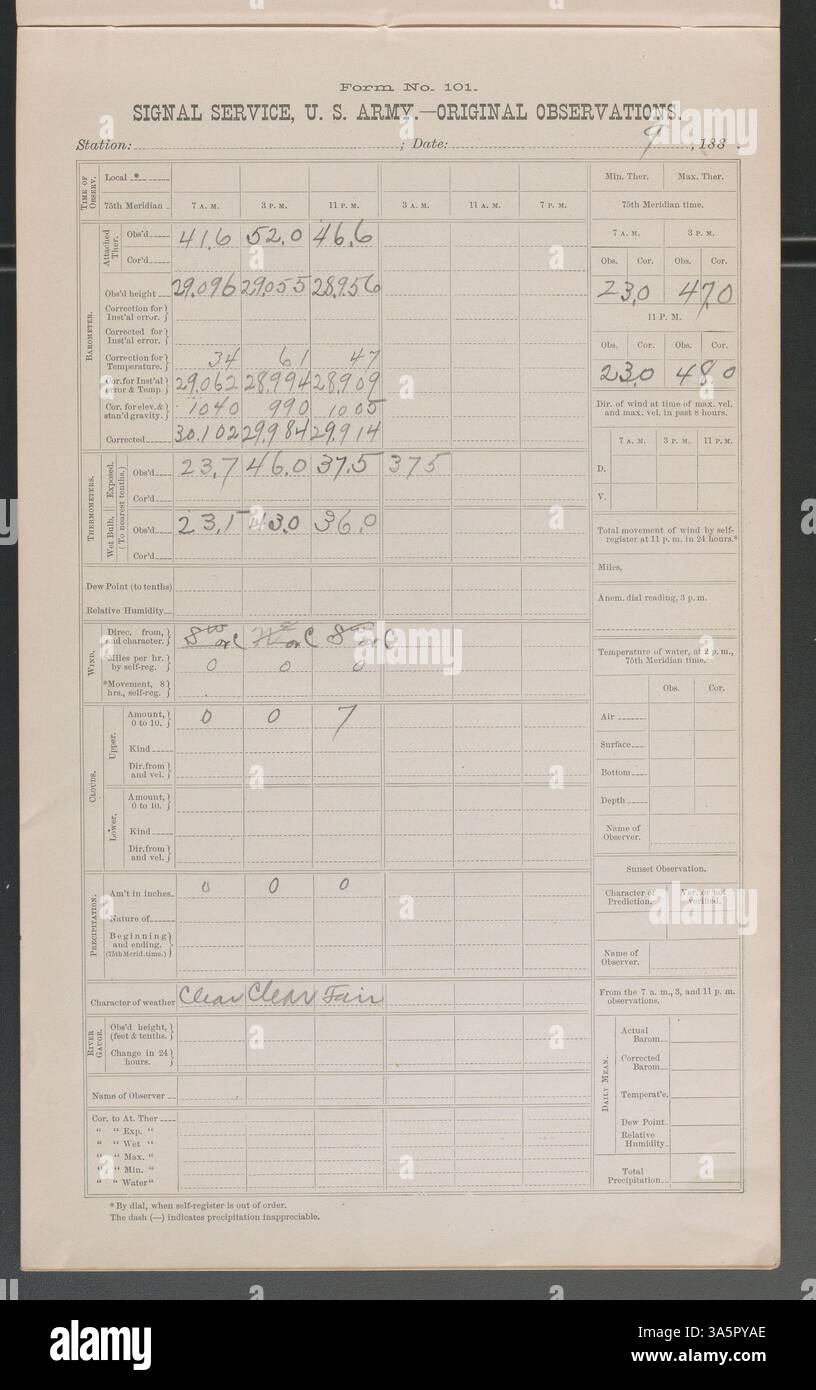 Form No. 101.
SIGNAL SERVICE, U. S. ARMY.—ORIGINAL OBSERVATIONS.
Station: ; Date: 9 , 188 .
TIME OF OBSERV.
Local *
75th Meridian 7 A. M. 3 P. M. 11 P. M. 3 A. M. 11 A. M. 7 P. M.
BAROMETER.
Attached Ther.
Obs'd 41.6 52.0 46.6
Cor'd
Obs'd height 29.096 29.055 28.956
Correction for Inst'al error.
Corrected for Inst'al error.
Correction for Temperature. 34 61 47
Cor. for Inst'al error & Temp 29.062 28.994 28.909
Cor. for elev. & stan'd gravity. 1040 990 1005
Corrected 30.102 29.984 29.914
THERMOMETERS.
(To nearest tenths.)
Exposed.
Obs'd 23.7 46.0 37.5 375
Cor'd
Wet Bulb.
Obs'd 23.1 43.0 36.0
Cor'd
Dew Point (to tenths)
Relative Humidity
WIND.
Direc. from, and character.
Miles per hr. by self-reg. 0 0 0
*Movement, 8 hrs., self-reg.
CLOUDS.
Upper.
Amount, 0 to 10. 0 0 7
Kind
Dir. from and vel.
Lower.
Amount, 0 to 10.
Kind
Dir. from and vel.
PRECIPITATION.
Am't in inches 0 0 0
Nature of
Beginning and ending. (75th Merid. time.)
Character of weather Clear Clear Fair
RIVER GAUGE.
Obs'd height, (feet & tenths.
Change in 24 hours.
Name of Observer
Cor. to At. Ther
“ “ Exp. “
“ “ Wet “
“ “ Max. “
“ “ Min. “
“ “ Water“
Min. Ther. Max. Ther.
75th Meridian time.
7 A. M. 3 P. M.
Obs. Cor. Obs. Cor.
23.0 47.0
11 P. M.
Obs. Cor. Obs. Cor.
23.0 48.0
Dir. of wind at time of max. vel.
and max. vel. in past 8 hours.
7 A. M. 3 P. M. 11 P. M.
D.
V.
Total movement of wind by self-
register at 11 p. m. in 24 hours.*
Miles,
Anem. dial reading, 3 p. m.
Temperature of water, at 2 p. m.,
75th Meridian time.
Obs. Cor.
Air
Surface
Bottom
Depth
Name of Observer.
Sunset Observation.
Character of Prediction. Ver. or not verified.
Name of Observer.
From the 7 a. m., 3, and 11 p. m.
observations.
DAILY MEAN.
Actual Barom
Corrected Barom
Temperat'e.
Dew Point.
Relative Humidity
Total Precipitation
* By dial, when self-register is out of order.
The dash (—) indicates precipitation inappreciable.
alamy
www.alamy.com
Image ID: 3A5PYAE